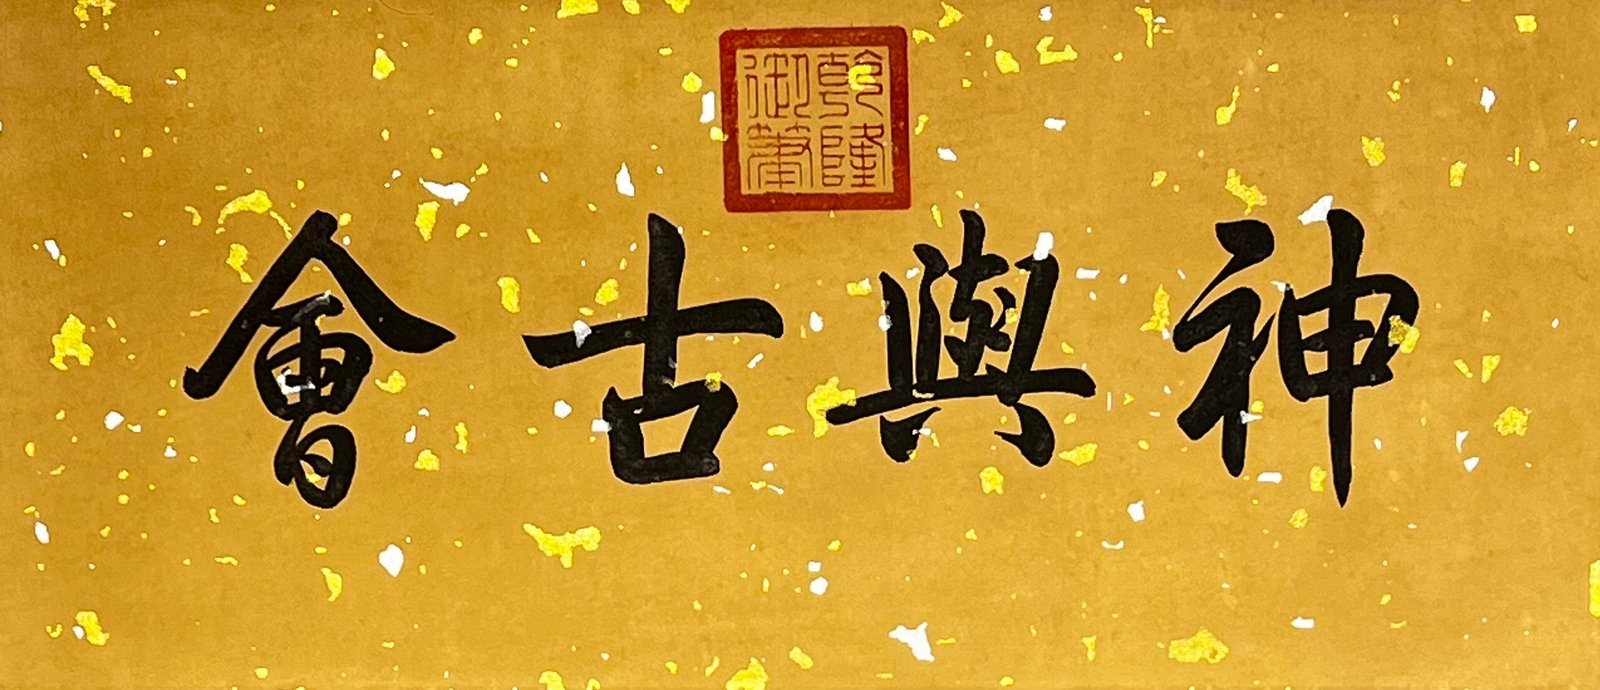 乾隆
御筆
神與古會